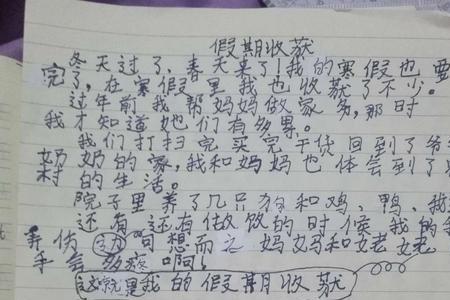 假期收获
冬天过了,春天来了!我的寒假也要
完了,在寒假里我也收获了不少。
过年前我帮妈妈做家务,那时
我才知道她们有多累。
我们打扫完买完干货回到了爷
奶奶的家,我和妈妈也体会到了
村的生活。
院子里养了几只狗和鸡、鸭、我
还有还有做饭的时候,我的
弄伤 可想而之妈妈和姥姥
手会多疼啊!
这就是我的假期收获